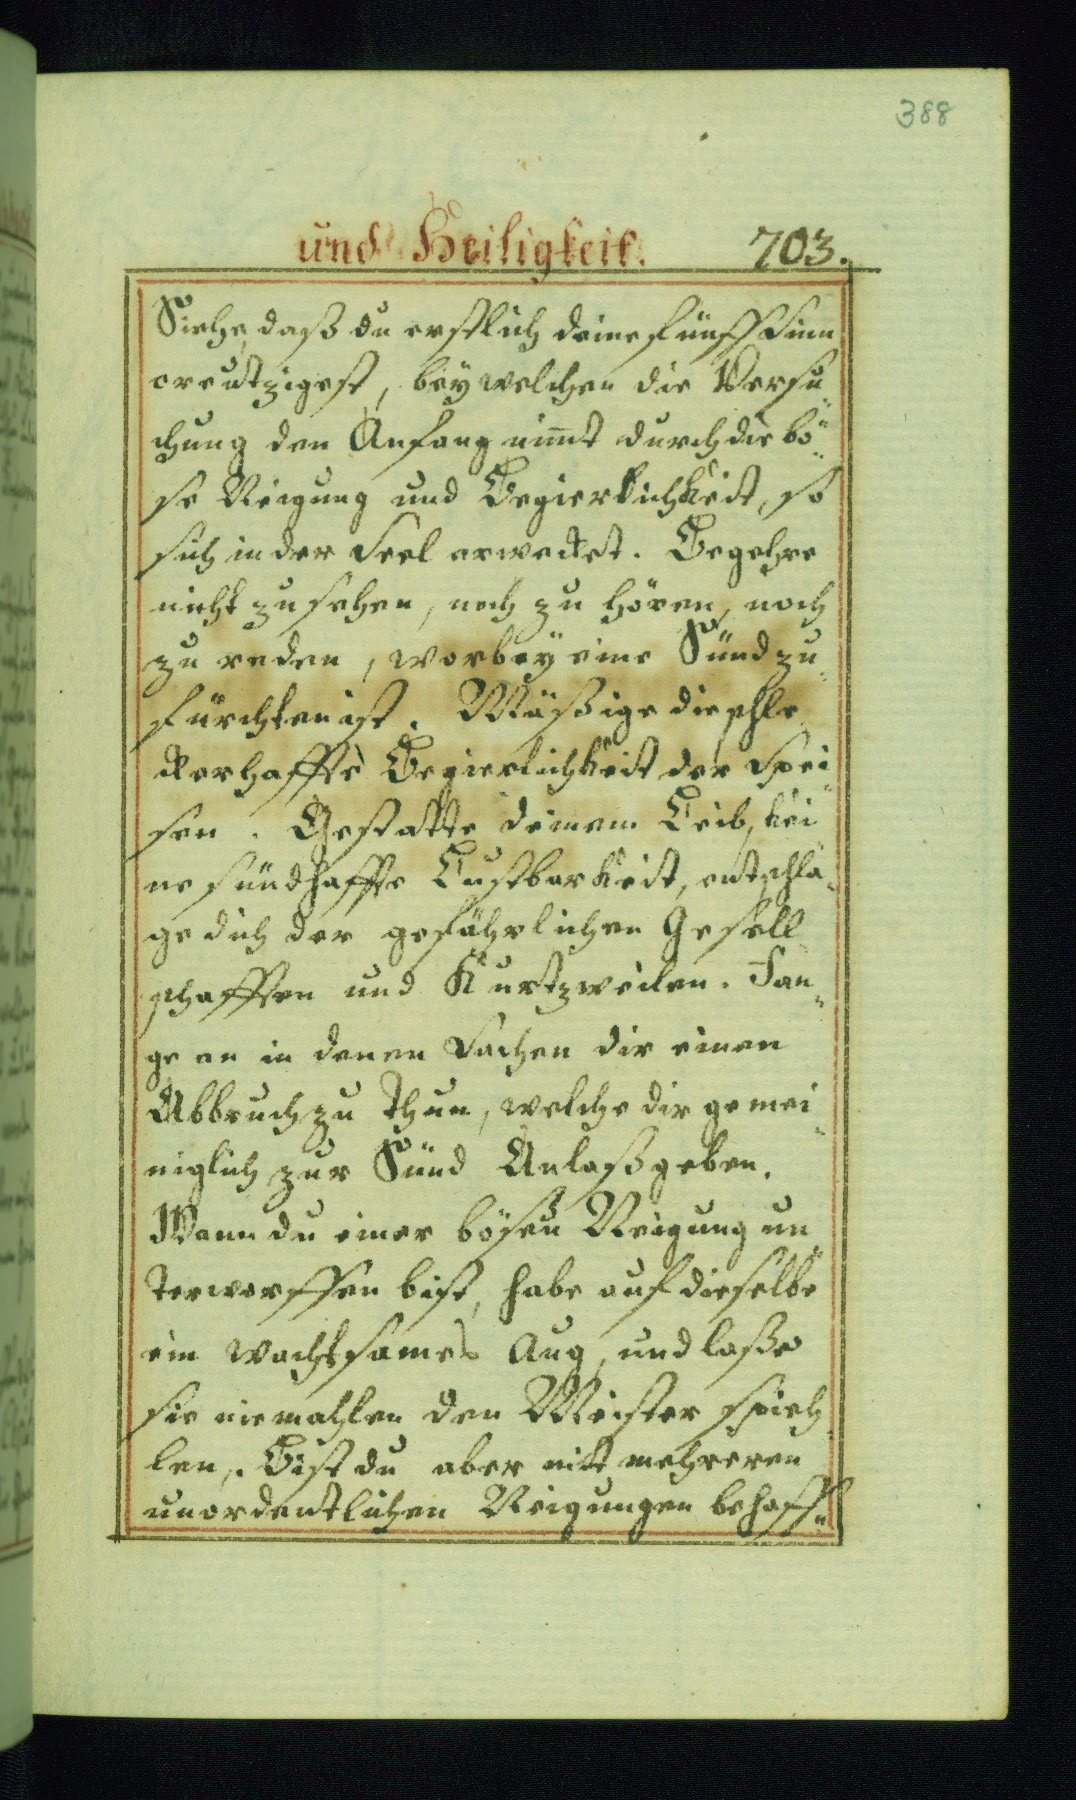 388
und Heiligkeit. 703.
Siehe, daß du erstlich deine fünff Sinn
creützigest, beÿ welchen die Versu¨
chung den Anfang nim̅t durch die bö¨
se Neigung und Begierlichkeit, so
sich in der Seel erwecket. Begehre
nicht zu sehen, noch zu hören, noch
zu reden, worbeÿ eine Sünd zu¨
fürchten ist. Mäßige die schle¨
ckerhaffte Begierlichkeit der Spei¨
sen. Gestatte deinem Leib, kei
ne sündhaffte Lustbarkeit, entschla¨
ge dich der gefährlichen Gesell¨
schafften und Kurtzweilen. Fan¨
ge an in denen Sachen dir einen
Abbruch zu thun, welche dir gemei¨
niglich zur Sünd Anlaß geben.
Wann du einer bösen Neigung un¨
terworffen bist, habe auf dieselbe
ein wachtsames Aug, und laße
sie niemahlen den Meister spieh¨
len. Bist du aber mit mehreren
unordentlichen Neigungen behaff¨